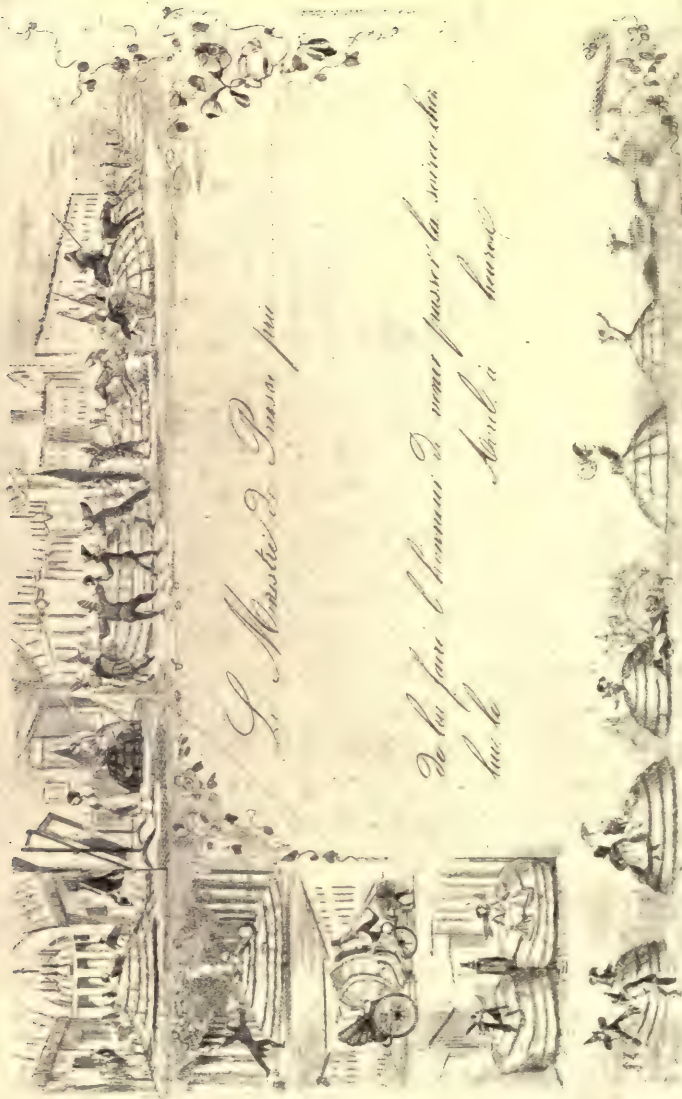 Le Ministre de Prusse prie
de lui faire l'honneur de venir passer la soirée chez
lui le Avril à heures